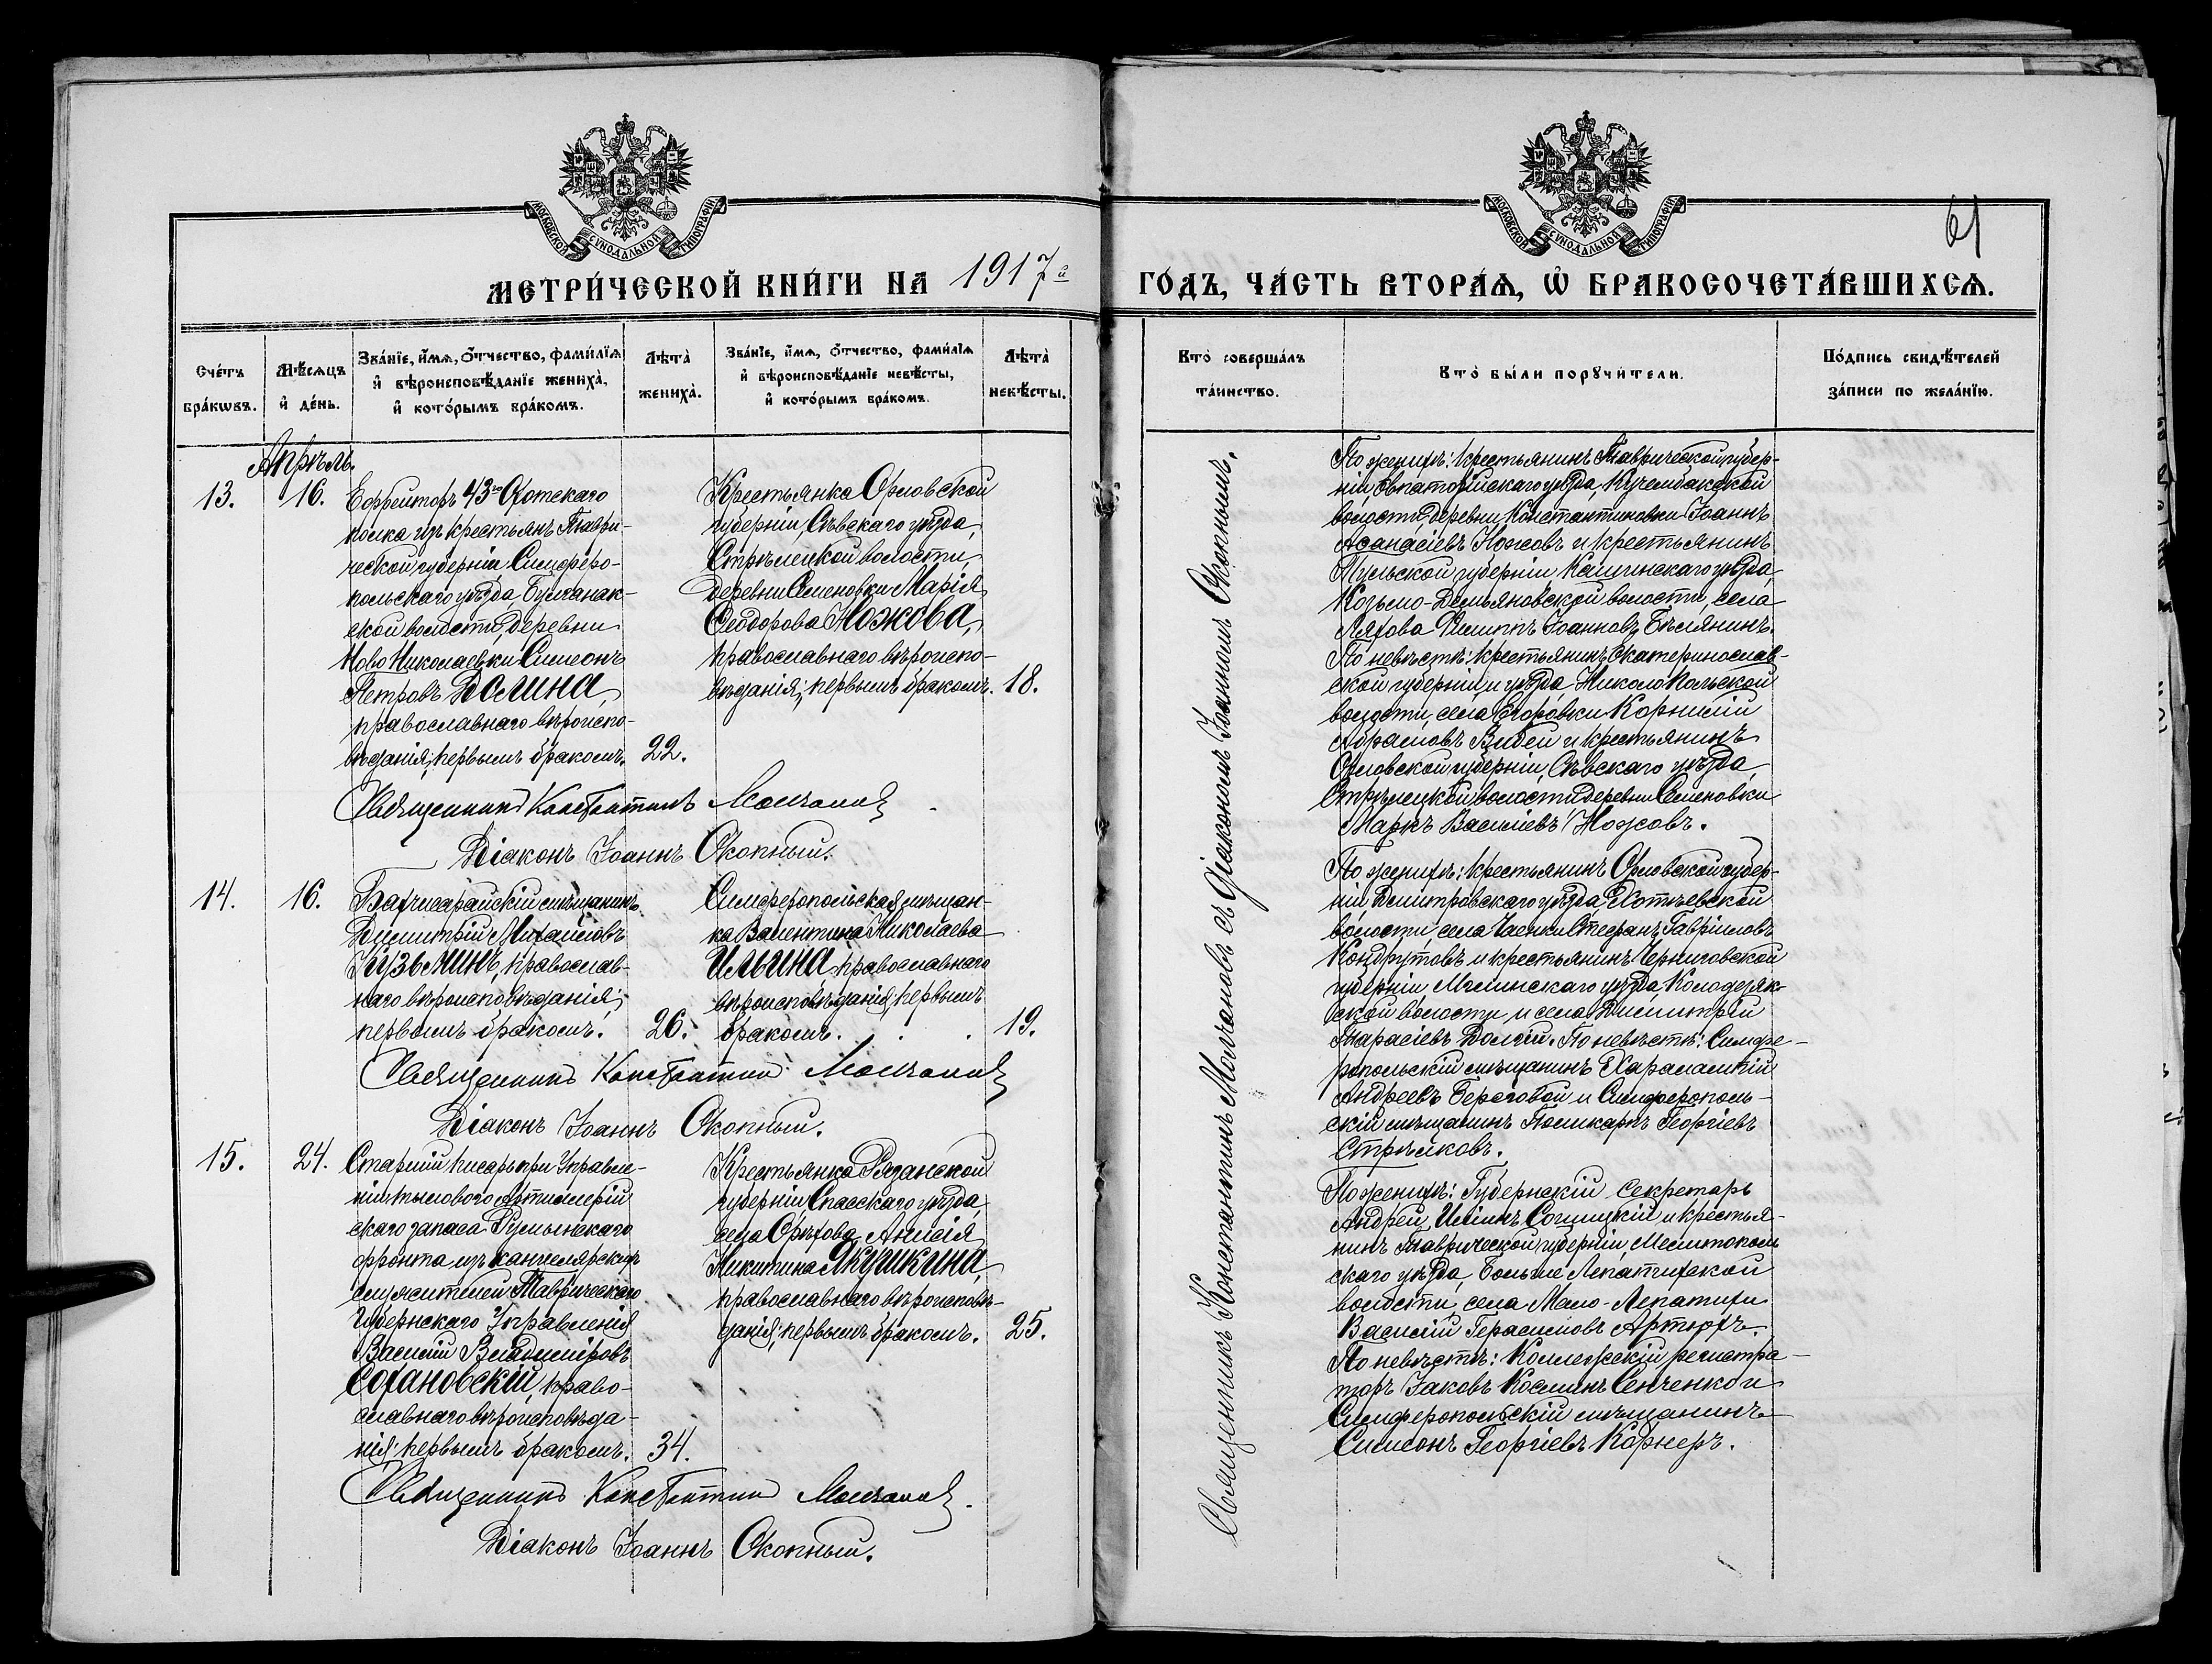 МОСКОВСКОЙ СУНОДАЛЬНОЙ ТИПОГРАФІИ
МЕТРИ́ЧЕСКОЙ КНИ́ГИ НА 1917й
Сче́тъ бра́кѡвъ.
Мѣ́сѧцъ и҆ де́нь.
Зва́нїе, и҆́мѧ, ѻ҆́тчество, фами́лїѧ и҆ вѣроисповѣ́данїе жениха̀, и҆ кото́рымъ бра́комъ.
Лѣта̀ жениха̀.
Зва́нїе, и҆́мѧ, ѻ҆́тчество, фами́лїѧ и҆ вѣроисповѣ́данїе невѣ́сты, и҆ кото́рымъ бра́комъ.
Лѣта̀ невѣ́сты.
Апрѣль.
13.
16.
Ефрейторъ 43го Охотскаго
полка изъ крестьянъ Таври-
ческой губерніи Симферо-
польскаго уѣзда Булганак-
ской волости, деревни
Ново Николаевки Симеонъ
Петровъ Долина,
православнаго вѣроиспо-
вѣданія; первымъ бракомъ.
22.
Крестьянка Орловской
губерніи, Сѣвскаго уѣзда,
Стрѣлецкой волости,
деревни Семеновки Марія
Ѳеодорова Ножова,
православнаго вѣроиспо-
вѣданія; первымъ бракомъ.
18.
Священникъ Константинъ Молчановъ.
Діаконъ Іоаннъ Окопный.
14.
16.
Бахчисарайскій мѣщанинъ
Димитрій Михайловъ
Кузьминъ, православ-
наго вѣроисповѣданія;
первымъ бракомъ.
26.
Симферопольская мѣщан-
ка Валентина Николаева
Ильина, православнаго
вѣроисповѣданія; первымъ
бракомъ. . .
19.
Священникъ Константинъ Молчановъ
Діаконъ Іоаннъ Окопный.
15.
24.
Старшій писарь при Управле-
ніи тылового Артиллерій
скаго запаса Румынскаго
фронта изъ канцелярскихъ
служителей Таврическаго
Губернскаго Управленія
Василій Владиміровъ
Сохановскій, право-
славнаго вѣроисповѣда-
нія; первымъ бракомъ.
34.
Крестьянка Рязанской
губерніи Спасскаго уѣзда,
села Орѣхова Анисія
Никитина Якушкина,
православнаго вѣроисповѣ-
данія; первымъ бракомъ.
25.
Священникъ Константинъ Молчановъ.
Діаконъ Іоаннъ Окопный.
61
МОСКОВСКОЙ СУНОДАЛЬНОЙ ТИПОГРАФІИ
ГО́ДЪ, ЧА́СТЬ ВТОРА́Ѧ, Ѡ҆ БРАКОСОЧЕТА́ВШИХСѦ.
Кто̀ соверша́лъ та́инство.
Кто̀ бы́ли порꙋчи́тели.
По́дпись свидѣ́телей за́писи по жела́нїю.
Священникъ Константинъ Молчановъ съ діакономъ Іоанномъ Окопнымъ.
По женихѣ: крестьянинъ Таврической губер-
ніи, Евпаторійскаго уѣзда,
волости, деревни Константиновки Іоаннъ
Аѳанасіевъ Ножовъ и крестьянинъ
Тульской губерніи Каширскаго уѣзда,
Козьмо-Демьяновской волости, села
Ляхова Филиппъ Іоанновъ Бѣлянинъ.
По невѣстѣ: крестьянинъ Екатеринослав-
ской губерніи, и уѣзда Николо Польской
волости, села Егоровки Корнилій
Абрамовъ Бибей и крестьянинъ
Орловской губерніи, Сѣвскаго уѣзда,
Стрѣлецкой волости деревни Семеновки
Маркъ Василіевъ Ножовъ.
По женихѣ: крестьянинъ Орловской губер-
ніи Дмитровскаго уѣзда
волости, села Стефанъ Гавріиловъ
Кондрутовъ и крестьянинъ Черниговской
губерніи Мглинскаго уѣзда,
ской волости и села Димитрій
Тарасіевъ Долгій. По невѣстѣ: Симфе-
ропольскій мѣщанинъ Харалампій
Андреевъ Береговой и Симферополь-
скій мѣщанинъ Поликарпъ Георгіевъ
Стрѣлковъ.
По женихѣ: Губернскій Секретарь
Андрей Иліинъ и крестья-
нинъ Таврической губерніи, Мелитополь
скаго уѣзда, Больше Лепатихской
волости, села Мало-Лепатихи
Василій Герасимовъ Артюхъ.
По невѣстѣ: Коллежскій регистра-
торъ Іаковъ Косминъ Сенченко и
Симферопольскій мѣщанинъ
Симеонъ Георгіевъ Корнеръ.